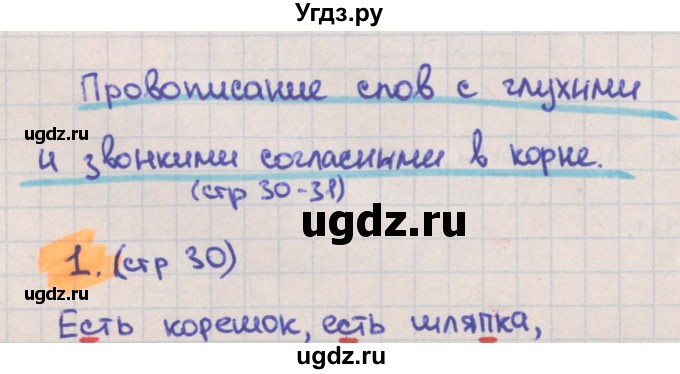 Угдз.ру
Провописание слов с глухими
ugdz.ru
ugdz.ru
и звонкими согласными в корне.
(стр 30-31)
ugdz.ru
1. (стр 30)
ugdz.ru
ugdz.ru
Есть корешок, есть шляпка,
ugdz.ru